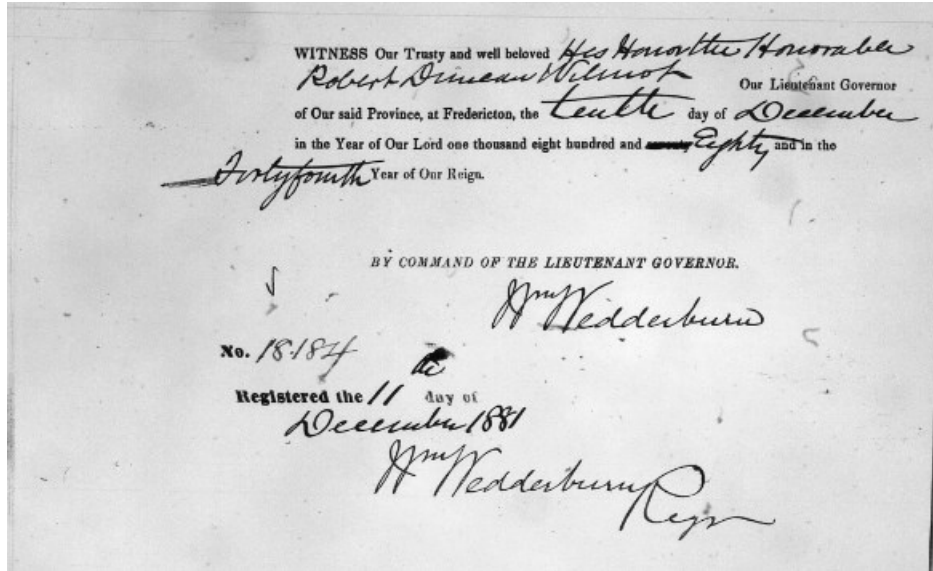 WITNESS Our Trusty and well beloved His Honor the Honorable
Robert Duncan Wilmot Our Lieutenant Governor
of Our said Province, at Fredericton, the tenth day of December
in the Year of Our Lord one thousand eight hundred and seventy Eighty and in the
Forty fourth Year of Our Reign.
BY COMMAND OF THE LIEUTENANT GOVERNOR.
Wm Wedderburn
No. 18184
Registered the 11 day of
December 1881
Wm Wedderburn
Regr